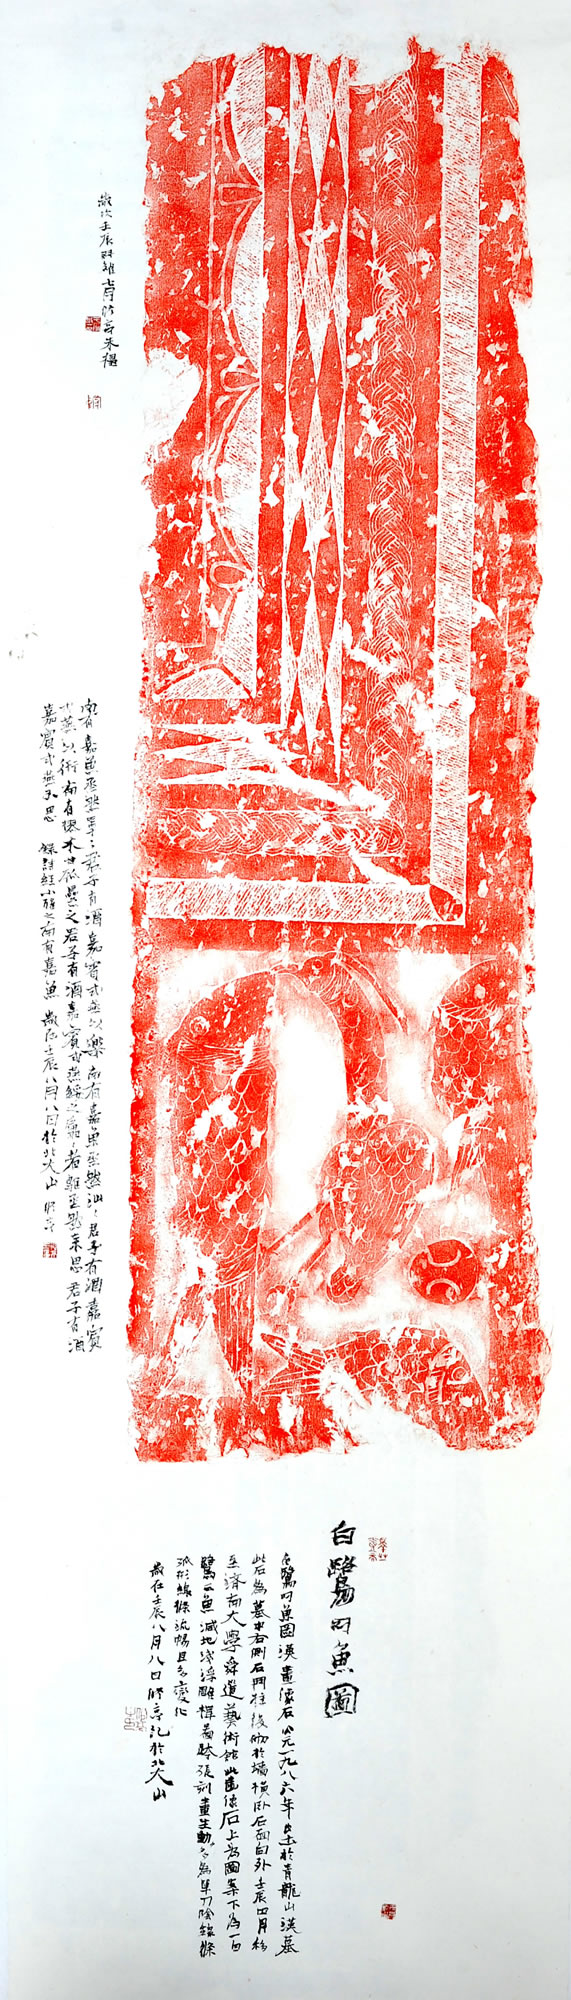 白鷺叼魚圖
白鷺叼魚圖漢畫像石公元一九八六年出土於青龍山漢墓
此石為墓中右側石門柱後砌於墻橫卧石面向外壬辰四月移
至濟南大學舜道藝術館此畫像石上為圖案下為一白
鷺三魚減地淺浮雕楫刻畫生動多為單刀陰線條
弧形線條流暢且多變化
歲在壬辰八月八日時亭記於北大山
南有嘉魚烝然罩罩君子有酒嘉賓式燕以樂南有嘉魚烝然汕汕君子有酒嘉賓
式燕以衎南有樛木甘瓠纍之君子有酒嘉賓式燕綏之翩翩者鵻烝然來思君子有酒
嘉賓式燕又思 錄詩經小雅之南有嘉魚 歲在壬辰八月八日於北大山
歲次壬辰